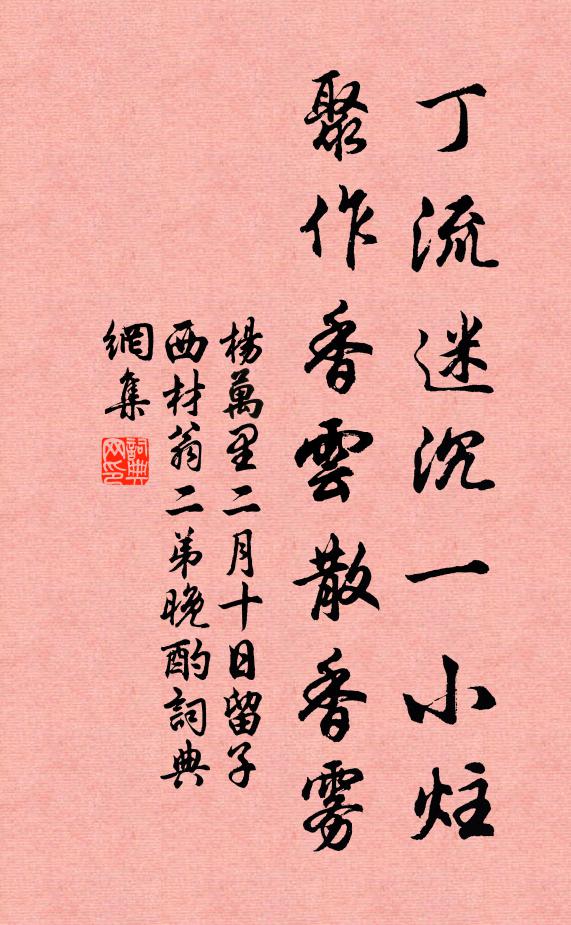 丁流迷沉一小炷
聚作香雲散香雾
楊萬里二月十日留子
西材翁二弟晚酌詞典
網集
詞典
网印